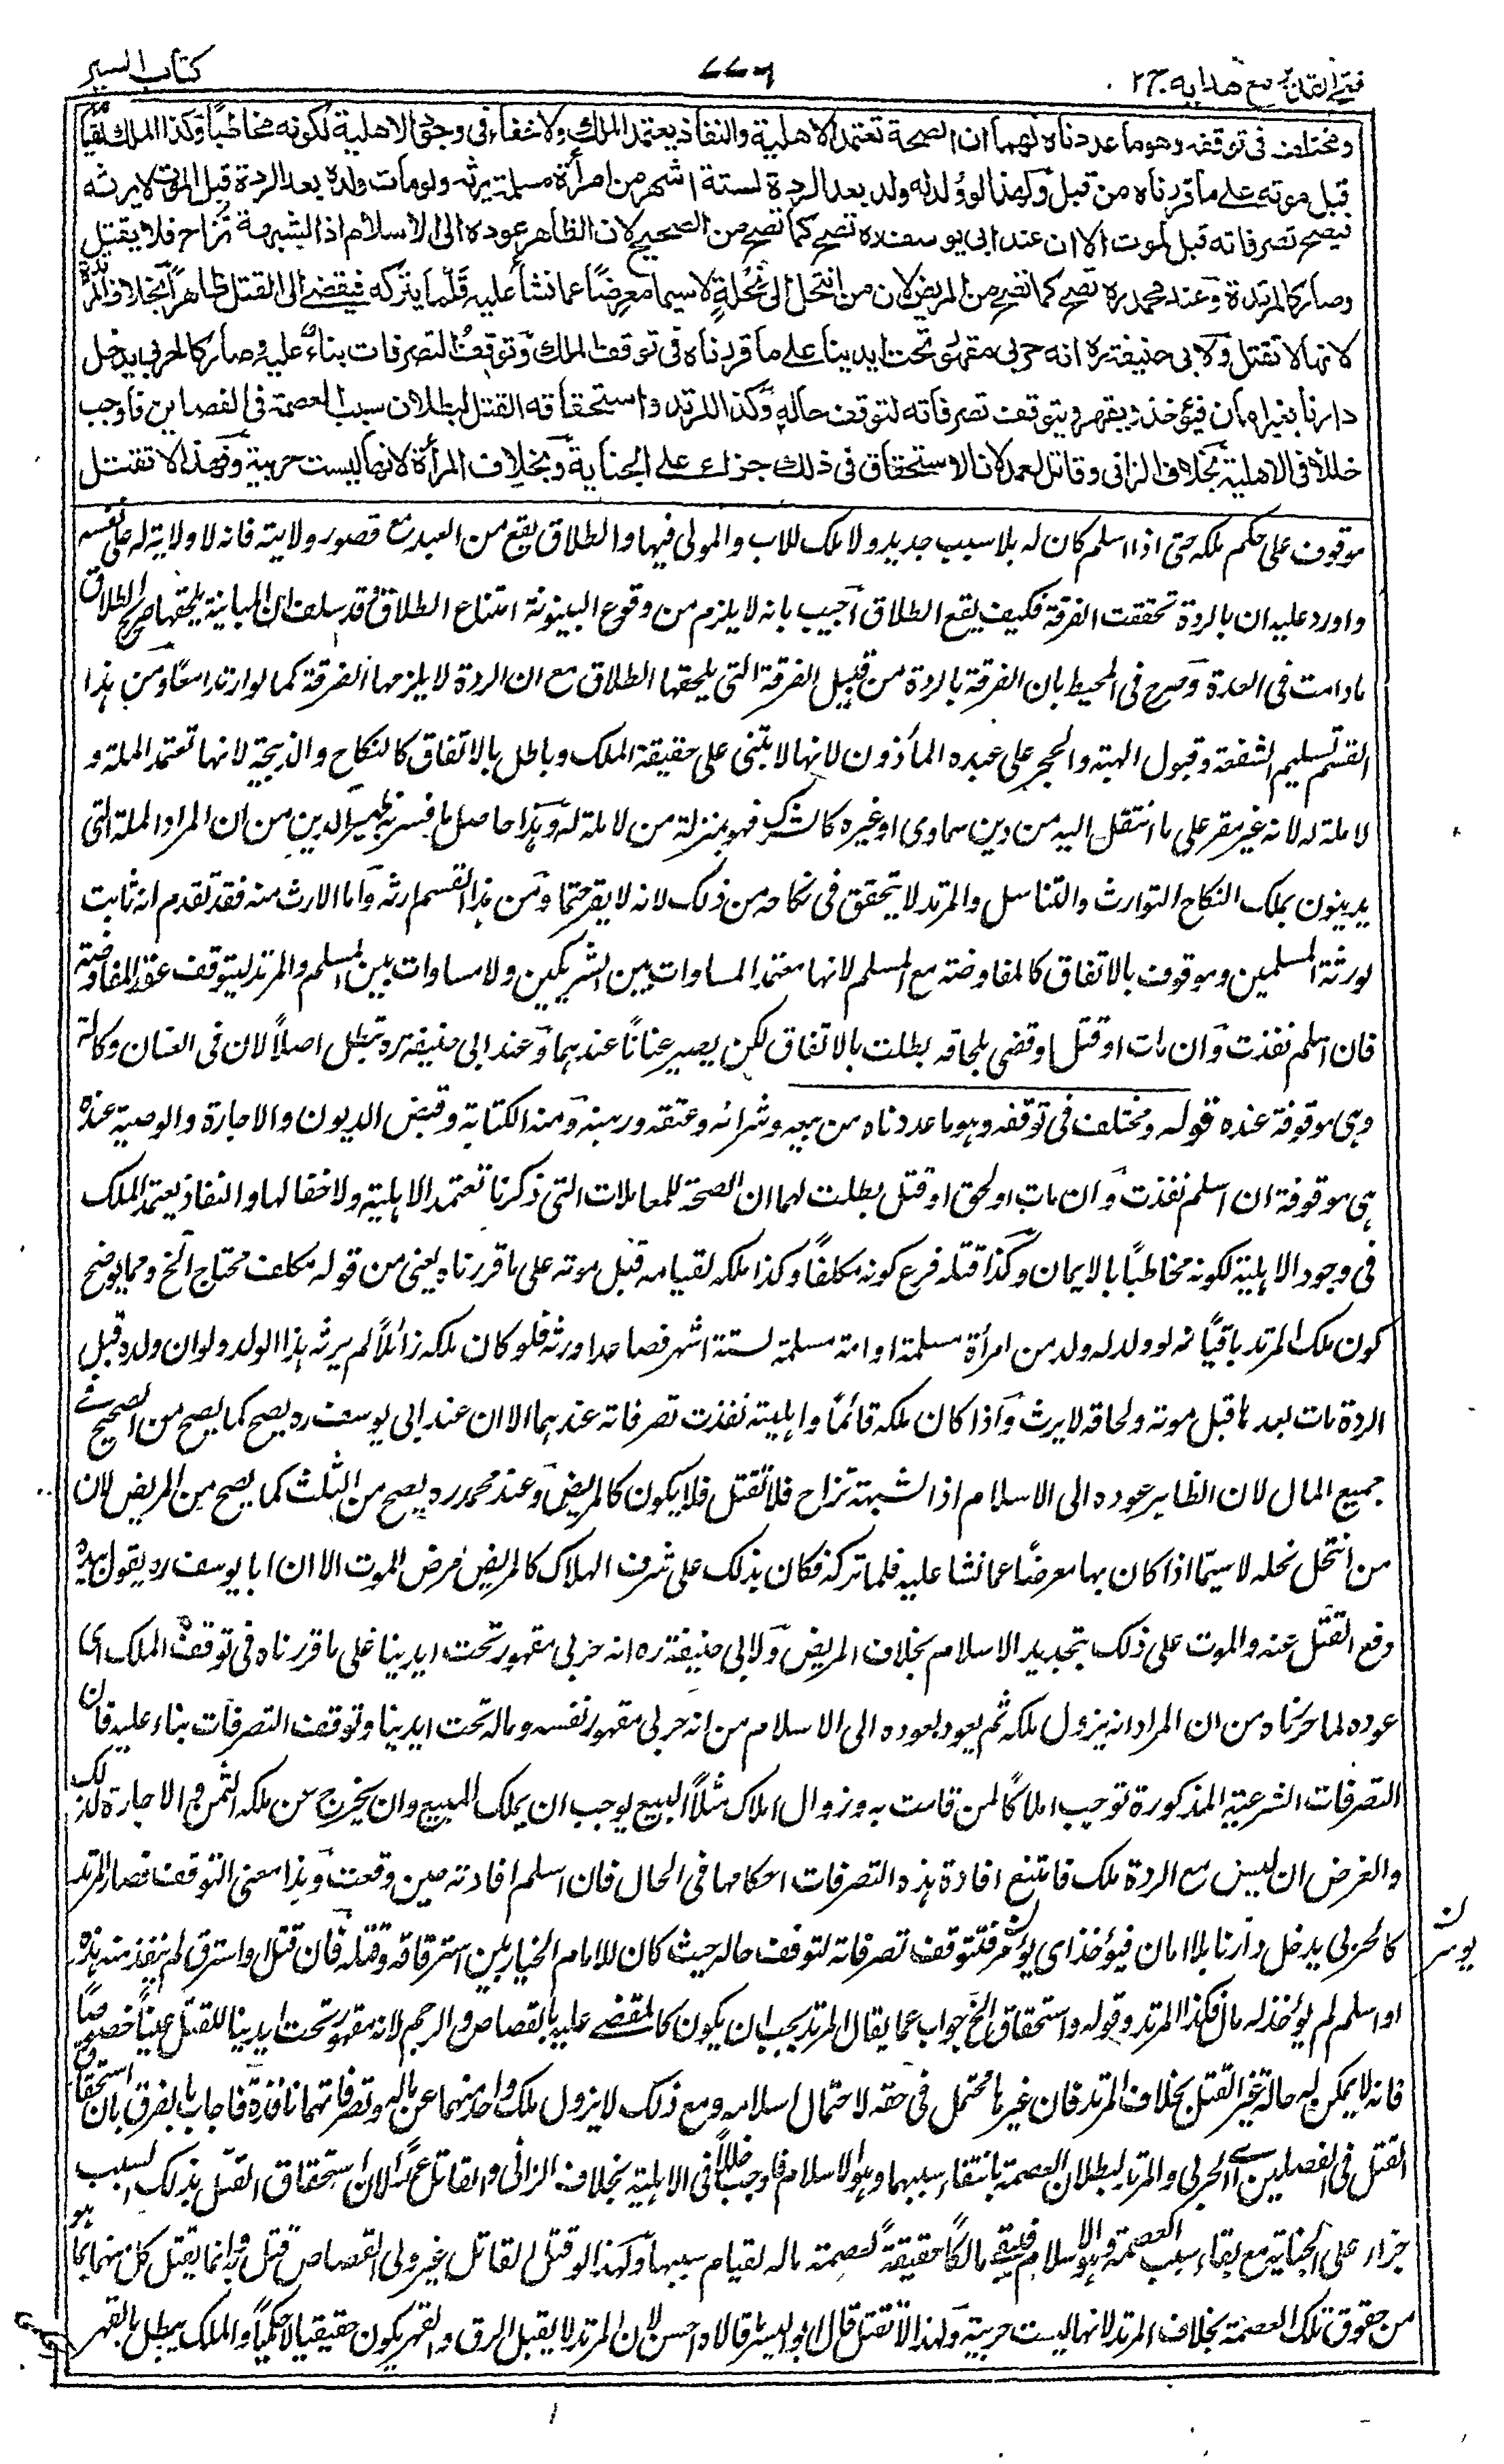 فتح القدير مع هدايه ج ٢
كتاب السير
ومختلف فى توقفه وهو ما عددناه لهما ان الصحة تعتمد الاهلية والنفاذ يعتمد الملك ولا خفاء فى وجود الاهلية لكونه مخاطباً وكذا الملك لقيامه
قبل موته على ما قررناه من قبل ولهذا لو ولد له ولد بعد الردة لستة اشهر من امرأة مسلمة يرثه ولو مات ولده بعد الردة قبل الموت لا يرثه
فيصح تصرفاته قبل الموت الا ان عند ابى يوسف ره تصح كما تصح من الصحيح لان الظاهر عوده الى الاسلام اذ الشبهة تزاح فلا يقتل
وصار كالمرتدة وعند محمد ره تصح كما تصح من المريض لان من انتحل الى نحلةٍ لا سيما معرضاً عما نشأ عليه قلما يتركه فيفضى الى القتل ظاهراً بخلاف المرتدة
لانها لا تقتل ولابى حنيفة ره انه حربى مقهور تحت ايدينا على ما قررناه فى توقف الملك وتوقف التصرفات بناءً عليه وصار كالحربى يدخل
دارنا بغير امان فيؤخذ ويقهر ويتوقف تصرفاته لتوقف حاله وكذا المرتد واستحقاقه القتل لبطلان سبب العصمة فى الفصلين فاوجب
خللاً فى الاهلية بخلاف الزانى وقاتل العمد لان الاستحقاق فى ذلك جزاء على الجناية وبخلاف المرأة لانها ليست حربية ولهذا لا تقتل
موقوف على حكم ملكه حتى اذا اسلم كان له بلا سبب جديد ولا ملك للاب والمولى فيها والطلاق يقع من العبد مع قصور ولايته فانه لا ولاية له على نفسه
واورد عليه ان بالردة تحققت الفرقة فكيف يقع الطلاق اجيب بانه لا يلزم من وقوع البينونة امتناع الطلاق وقد سلف ان المبانة يلحقها صريح الطلاق
ما دامت فى العدة وصرح فى المحيط بان الفرقة بالردة من قبيل الفرقة التى يلحقها الطلاق مع ان الردة لا يلزمها الفرقة كما لو ارتدا معًا ومن هذا
القسم تسليم الشفعة وقبول الهبة والحجر على عبده المأذون لانها لا تبتنى على حقيقة الملك وباطل بالاتفاق كالنكاح والذبيحة لانها تعتمد الملة و
لا ملة له لانه غير مقر على ما انتقل اليه من دين سماوى او غيره كالشرك فهو بمنزلة من لا ملة له وهذا حاصل ما فسر به ظهير الدين من ان المراد الملة التى
يدينون بملك النكاح التوارث والتناسل والمرتد لا يتحقق فى نكاحه من ذلك لانه لا يقر حتما ومن هذا القسم ارثه واما الارث منه فقد تقدم انه ثابت
لورثة المسلمين وموقوف بالاتفاق كالمفاوضة مع المسلم لانها تعتمد المساوات بين الشريكين ولا مساوات بين المسلم والمرتد ليتوقف عقد المفاوضة
فان اسلم نفذت وان مات او قتل او قضى بلحاقه بطلت بالاتفاق لكن يصير عناناً عندهما وعند ابى حنيفة ره تبطل اصلاً لان فى العنان وكالة
وهى موقوفة عنده قوله ومختلف فى توقفه وهو ما عددناه من بيعه وشرائه وعتقه ورهنه ومنه الكتابة وقبض الديون والاجارة والوصية عنده
هى موقوفة ان اسلم نفذت وان مات او لحق او قتل بطلت لهما ان الصحة للمعاملات التى ذكرنا تعتمد الاهلية ولا خفا لها والنفاذ يعتمد الملك
فى وجود الاهلية لكونه مخاطباً بالايمان وكذا قتله فرع كونه مكلفاً وكذا ملكه لقيامه قبل موته على ما قررناه يعنى من قوله مكلف محتاج الخ ومما يوضح
كون ملك المرتد باقياً انه لو ولد له ولد من امرأة مسلمة او امة مسلمة لستة اشهر فصاعدا ورثه فلو كان ملكه زائلاً لم يرثه هذا الولد ولو ان ولده قبل
الردة مات بعدها قبل موته ولحاقه لا يرث واذا كان ملكه قائماً واهليته نفذت تصرفاته عندهما الا ان عند ابى يوسف ره يصح كما يصح من الصحيح فى
جميع المال لان الظاهر عوده الى الاسلام اذ الشبهة تزاح فلا تقتل فلا يكون كالمريض وعند محمد ره يصح من الثلث كما يصح من المريض لان
من انتحل نحله لا سيما اذا كان بها معرضاً عما نشا عليه قلما تركه فكان بذلك على شرف الهلاك كالمريض مرض الموت الا ان ابا يوسف ره يقول بيده
دفع القتل عنه والموت على ذلك بتجديد الاسلام بخلاف المريض ولابى حنيفة ره انه حربى مقهور تحت ايدينا على ما قررناه فى توقف الملك اى
عوده لما حررناه من ان المراد انه يزول ملكه ثم يعود بعوده الى الاسلام من انه حربى مقهور نفسه وماله تحت ايدينا وتوقف التصرفات بناء عليه فان
التصرفات الشرعية المذكورة توجب املاكاً لمن قامت به وزوال املاك مثلاً البيع يوجب ان يملك المبيع وان يخرج عن ملكه الثمن والاجارة كذلك
والغرض ان ليس مع الردة ملك فامتنع افادة هذه التصرفات احكامها فى الحال فان اسلم افادته حين وقعت وهذا معنى التوقف فصار المرتد
كالحربى يدخل دارنا بلا امان فيؤخذ اى يؤسر فتتوقف تصرفاته لتوقف حاله حيث كان للامام الخيار بين استرقاقه وقتله فان قتل او استرق لم ينفذ منه هذه
او اسلم لم يؤخذ له مال فكذا المرتد وقوله واستحقاق الخ جواب عما يقال المرتد يجب ان يكون كالمقضى عليه بالقصاص والرجم لانه مقهور تحت ايدينا للقتل عيناً خصوصاً
فانه لا يمكن له حالة غير القتل بخلاف المرتد فان غيرها محتمل فى حقه لاحتمال اسلامه ومع ذلك لا يزول ملك واحد منهما عن ماله وتصرفاتهما نافذة فاجاب بالفرق بان استحقاق
القتل فى الفصلين اى الحربى والمرتد لبطلان العصمة بانتفاء سببها وهو الاسلام فاوجب خللاً فى الاهلية بخلاف الزانى والقاتل عمداً لان استحقاق القتل بذلك السبب
جزاء على الجناية مع بقاء سبب العصمة وهو الاسلام فيبقى مالكاً حقيقة لعصمة ماله لقيام سببها ولهذا لو قتل القاتل غير ولى القصاص قتل به وانما يقتل كل منهما بما هو
من حقوق تلك العصمة بخلاف المرتد لانها ليست حربية ولهذا لا تقتل قال ابو اليسر ما قالاه احسن لان المرتد لا يقبل الرق والقهر يكون حقيقيا لا حكمياً والملك يبطل بالقهر